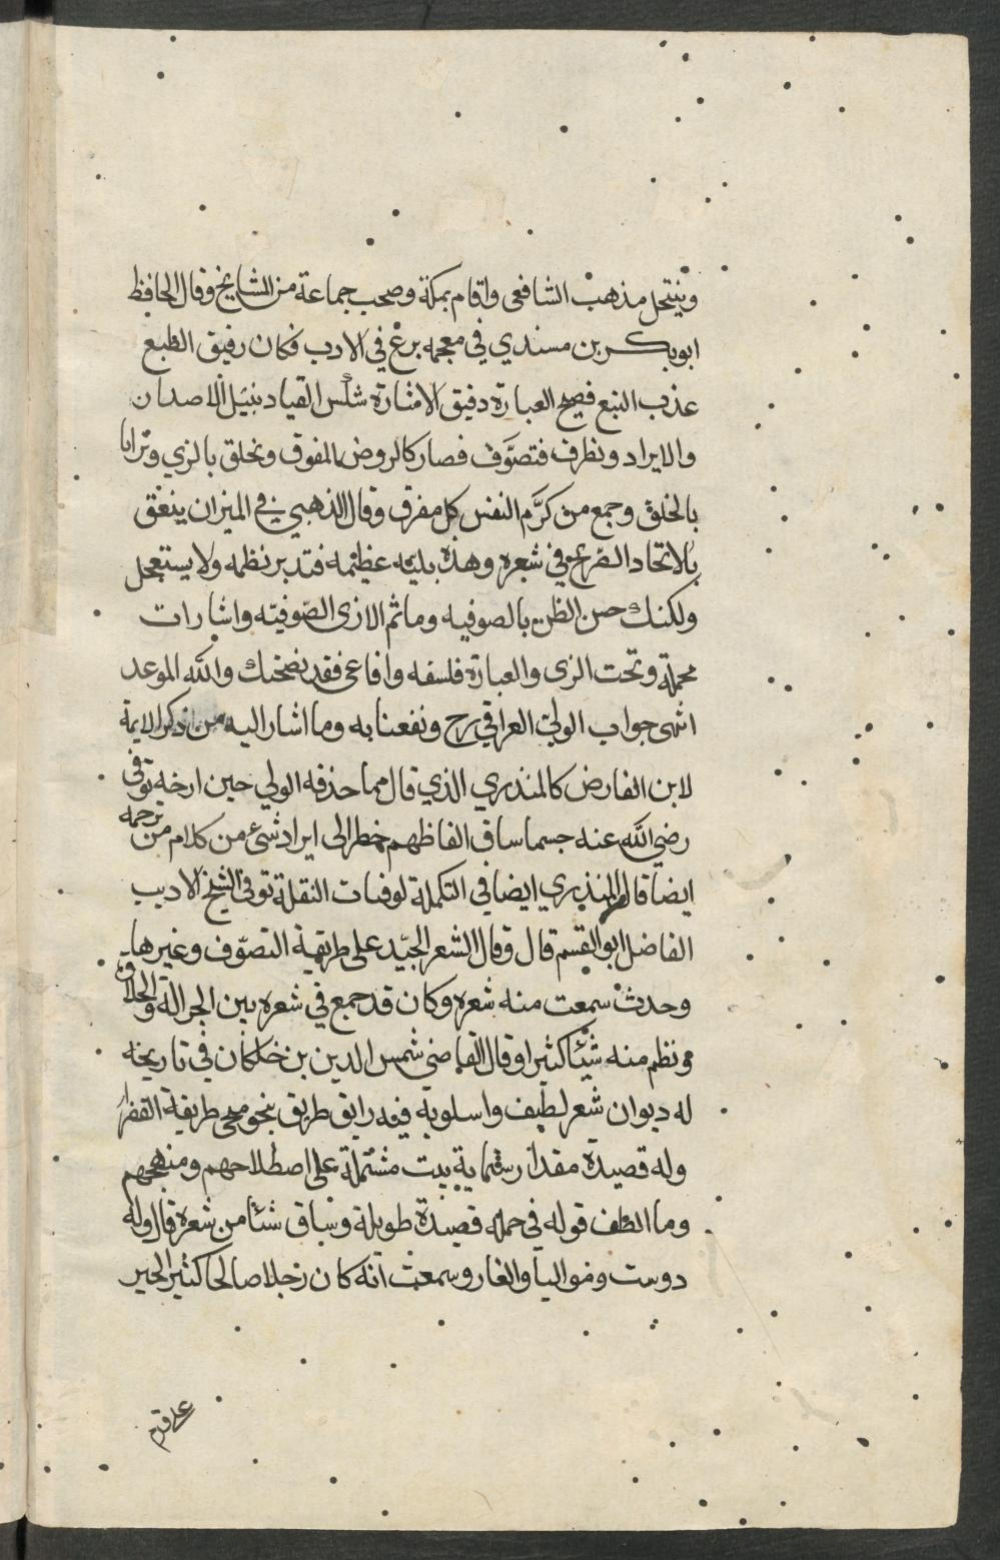 وينتحل مذهب الشافعي واقام بمكة وصحب جماعة من المشايخ وقال الحافظ
ابو بكر بن مسندي في معجمه برع في الادب فكان رفيق الطبع
عذب النبع فصيح العبارة دقيق الاشارة سلس القياد بنبيل الاصدان
والايراد ونظرف فتصوّف فصار كالروض المفوق وتخلق بالزي وتزايا
بالخلق وجمع من كرَّم النفس كل مفرق وقال الذهبي في الميزان ينعق
بالاتحاد الصريح في شعره وهذه بليه عظيمه فتدبر نظمه ولا يستعجل
ولكنك حسن الظن بالصوفيه وما ثم الا زى الصّوفيّه واشارات
مجملة وتحت الزى والعبارة فلسفه وافاعى فقد نصحتك والله الموعد
انتهى جواب الولي العراقي رح ونفعنا به وما اشار اليه من ذكر الايمة
لابن الفارض كالمنذري الذي قال مما حذفه الولي حين ارخه توفى
رضي الله عنه جسما ساق الفاظهم خطر الى ايراد شيء من كلام من ترجمه
ايضا قال المنذري ايضا في التكملة لوفيات النقلة توفي الشيخ الاديب
الفاضل ابو القسم قال وقال الشعر الجيّد على طريقة التصوّف وغيرها
وحدث سمعت منه شعره وكان قد جمع في شعره بين الجزالة والحلاوة
ونظم منه شيئا كثيرا وقال القاضي شمس الدين بن خلكان في تاريخه
له ديوان شعر لطيف واسلوبه فيه رايق طريق ينحو منحى طريقة الفقرا
وله قصيدة مقدار ستماية بيت مشتملة على اصطلاحهم ومنهجهم
وما الطف قوله في جملة قصيدة طويلة وساق شئا من شعره قال وله
دوست ومواليا والغاز وسمعت انه كان رجلا صالحا كثير الخير
على قدم